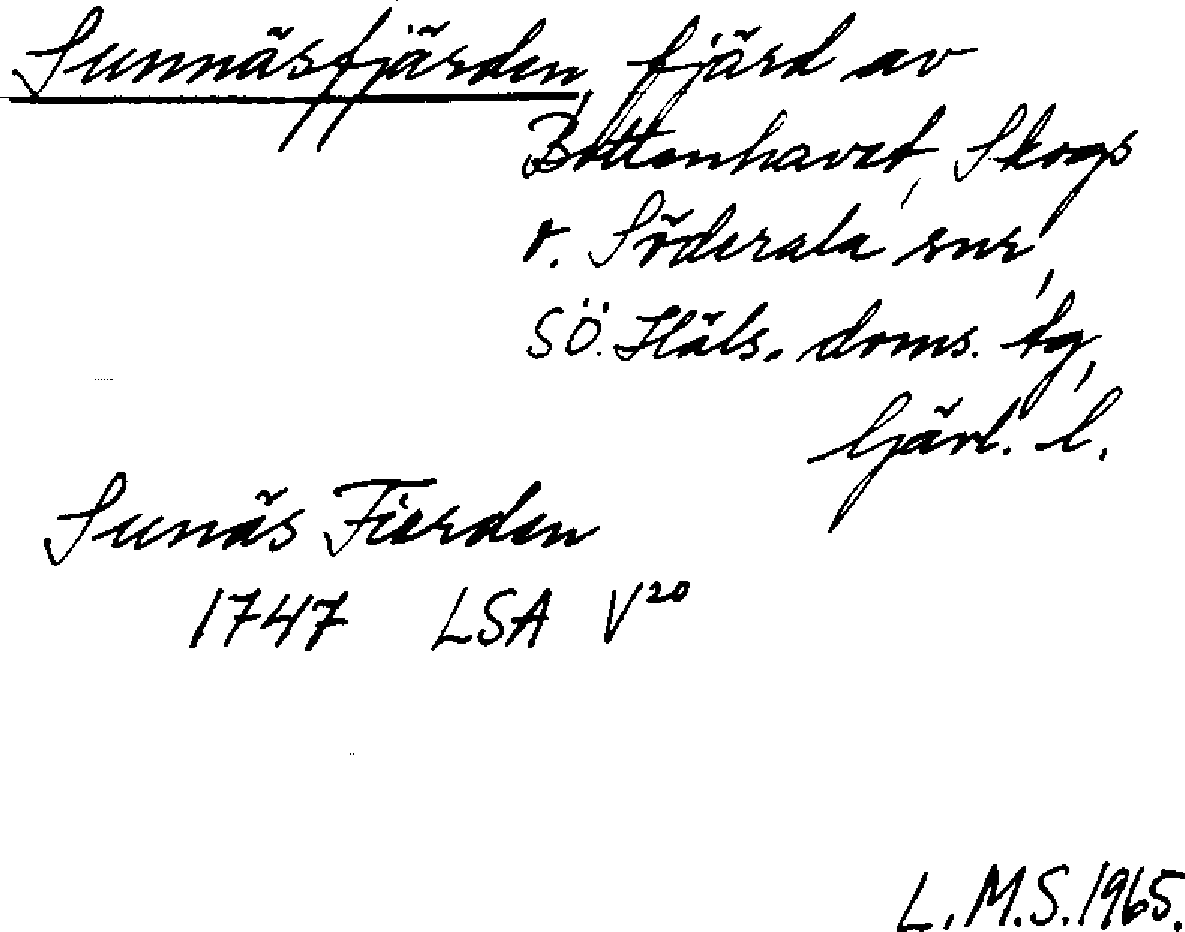 Sunnäsfjärden, fjärd av
Bottenhavet, Skogs
o. Söderala snr,
SÖ. Häls. doms. tg,
Gävl. l.
Sunäs Fierden
1747 LSA V²⁰
L.M.S. 1965.